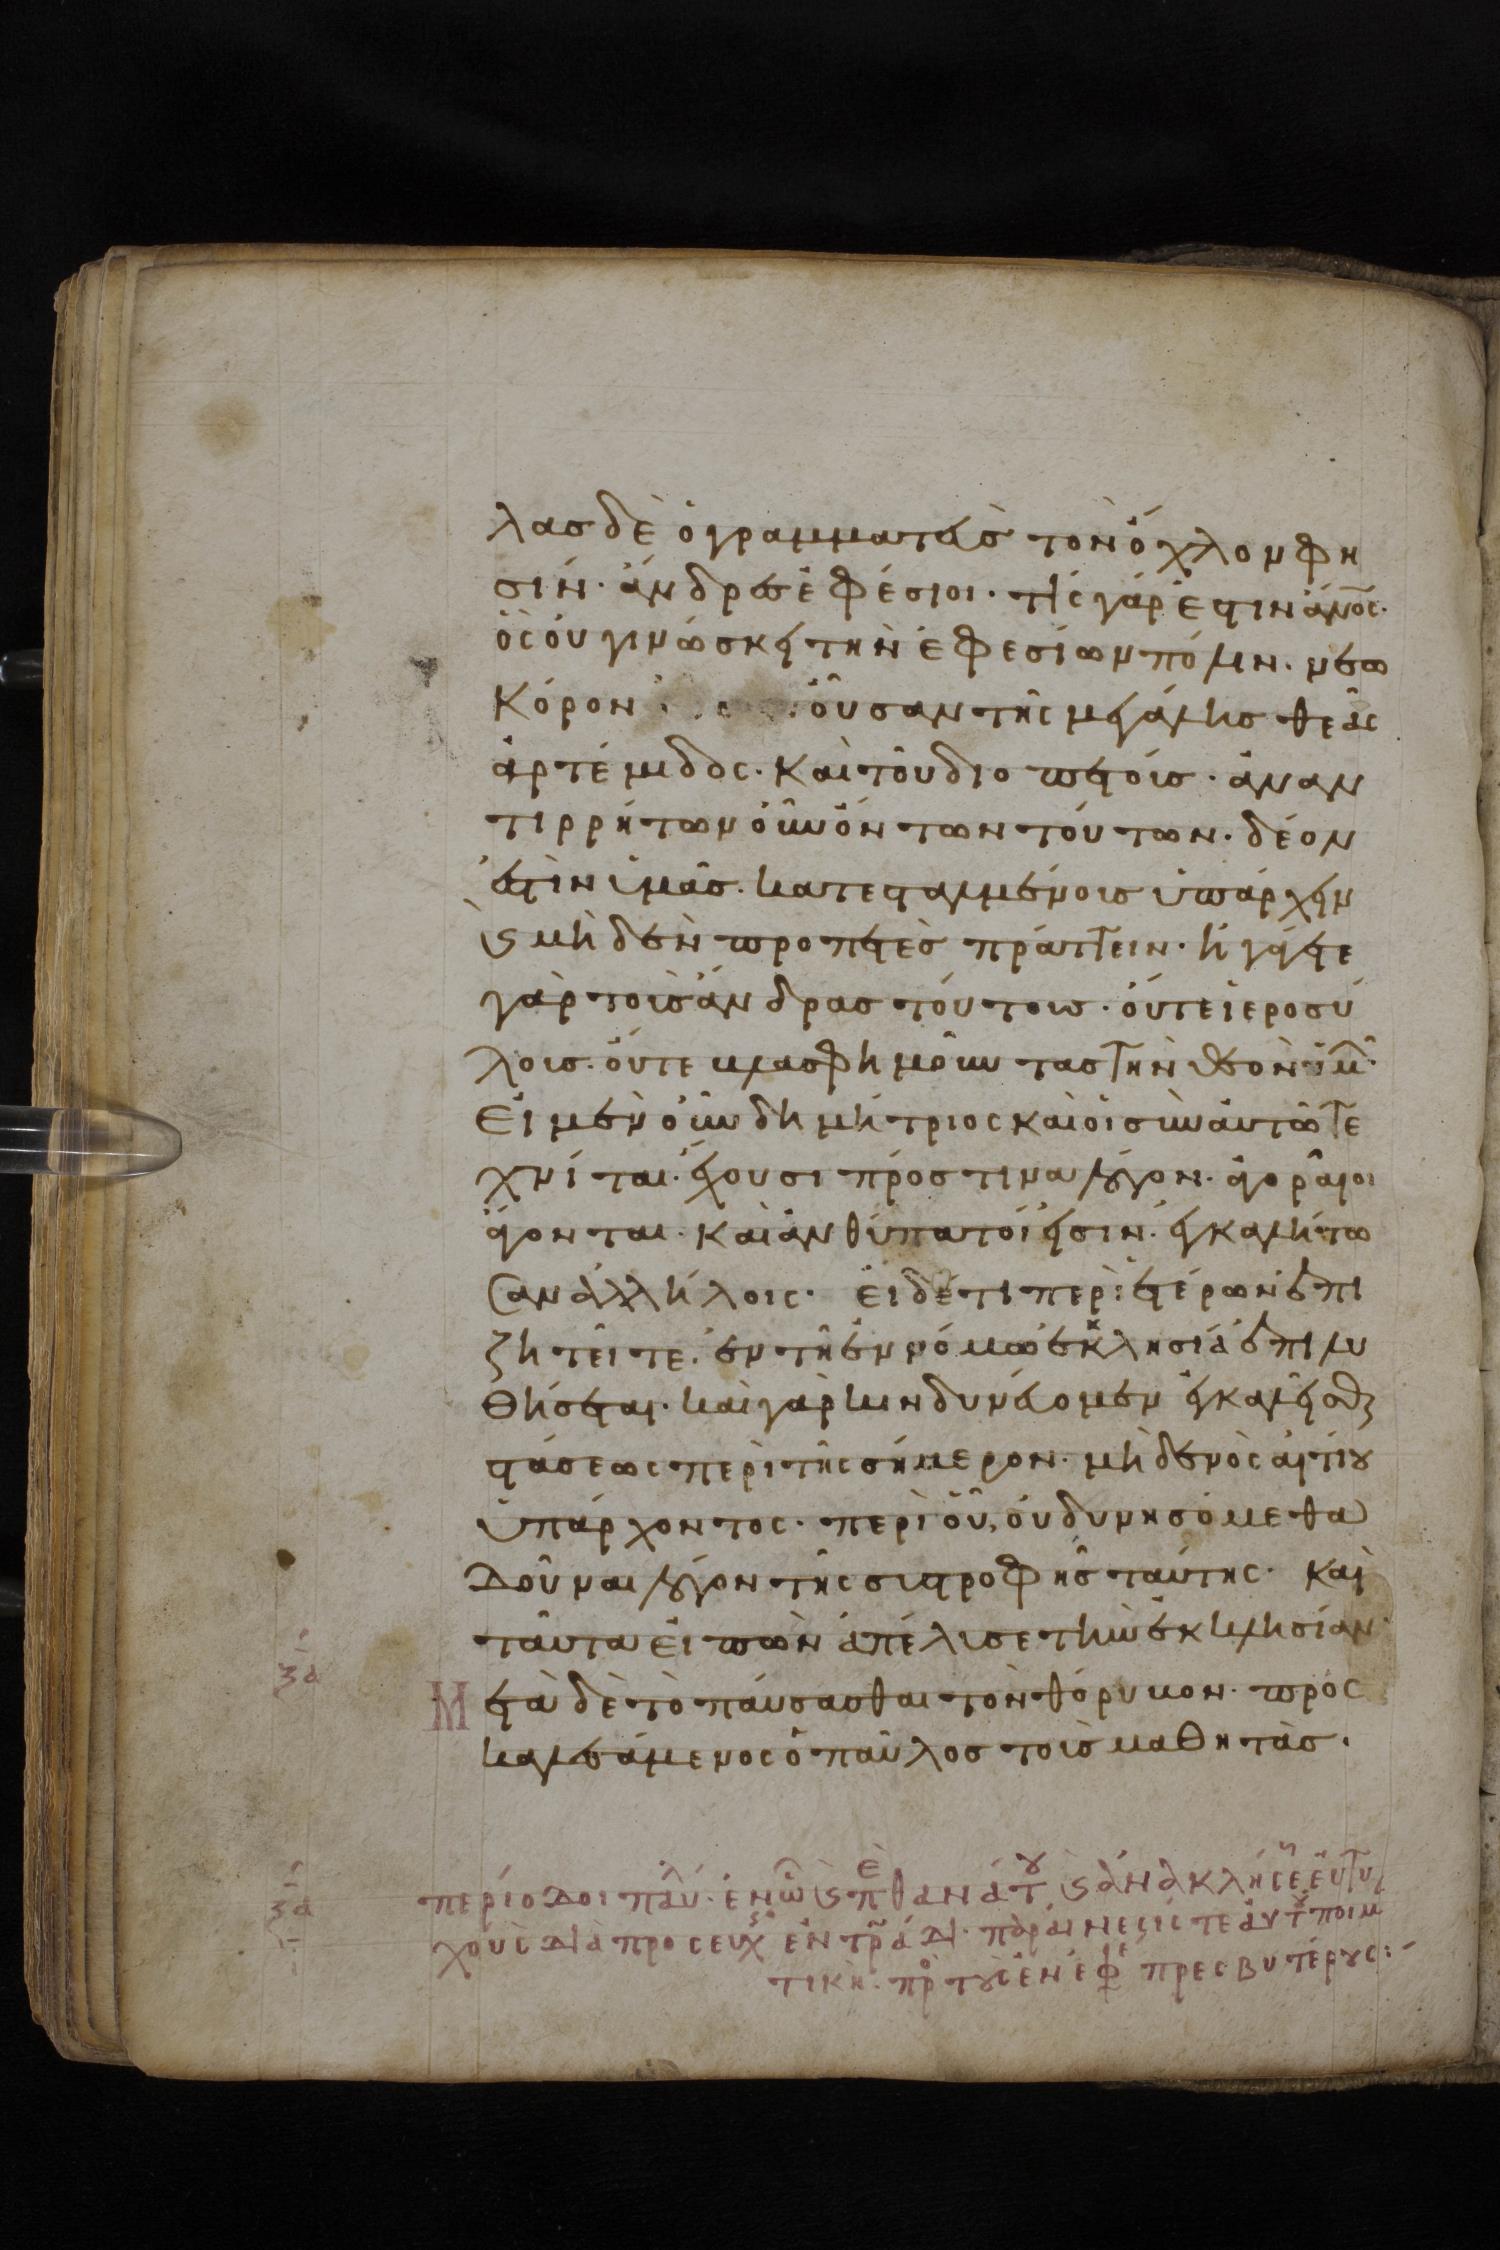 λας δὲ ὁ γραμματεὺς τὸν ὄχλον φη
σίν· ἄνδρες ἐφέσιοι· τίς γάρ ἐστιν ἀνος·
ὃς οὐ γινώσκει τὴν ἐφεσίων πόλιν· νεω
κόρον οὖσαν τῆς μεγάλης θεᾶς
ἀρτέμιδος· καὶ τοῦ διοπετοῦς· ἀναν
τιρρήτων οὖν ὄντων τούτων· δέον
ἐστὶν ὑμᾶς· κατεσταλμένους ὑπάρχειν
ϛ μηδὲν προπετὲς πράττειν· ἠγάγετε
γὰρ τοὺς ἄνδρας τούτους· οὔτε ἱεροσύ
λους· οὔτε βλασφημοῦντας τὴν θεὸν ὑμ·
Εἰ μὲν οὖν δημήτριος καὶ οἱ σὺν αὐτῶ τε
χνίται· ἔχουσι πρός τινα λόγον· ἀγοραῖοι
ἄγονται· καὶ ἀνθύπατοί εἰσιν· ἐγκαλείτω
σαν ἀλλήλοις· εἰ δέ τι περὶ ἑτέρων ἐπι
ζητεῖτε· ἐν τῆ ἐννόμω ἐκκλησία ἐπιλυ
θήσεται· καὶ γὰρ κινδυνεύομεν ἐγκαλεῖσθαι
στάσεως περὶ τῆς σήμερον· μηδενὸς αἰτίου
ὑπάρχοντος· περὶ οὗ, οὐ δυνησόμεθα
δοῦναι λόγον τῆς συστροφῆς ταύτης· καὶ
ταῦτα εἰπὼν ἀπέλυσε τὴν ἐκκλησίαν·
Μετὰ δὲ τὸ παύσασθαι τὸν θόρυβον· προσ
καλεσάμενος ὁ παῦλος τοὺς μαθητὰς·
περίοδοι παύλ· ἐν ὧ ϛ περὶ θανάτου ϛ ἀνακλήσεως εὐτυ
χους διὰ προσευχ ἐν τρωάδι· παραίνεσίς τε αὐτοῦ ποιμ
τικὴ· πρὸ τοὺς ἐν ἐφέ πρεσβυτέρους: